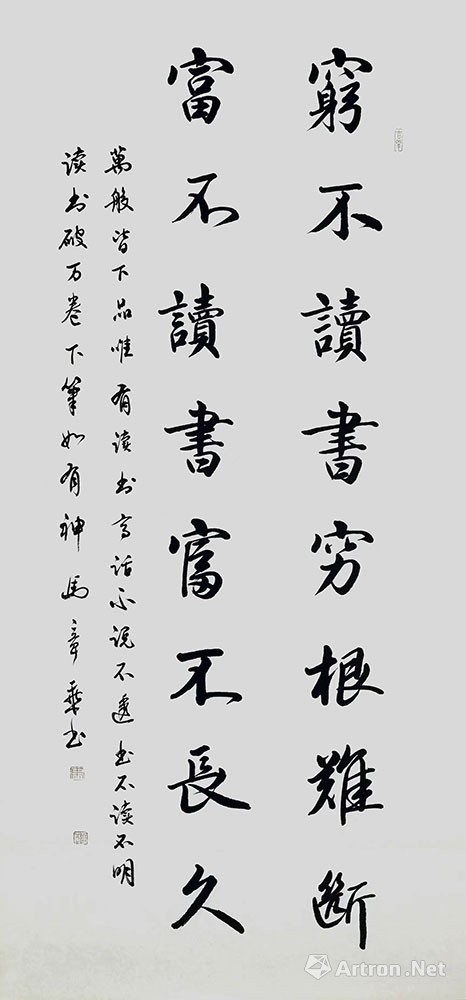 窮不讀書穷根難斷
富不讀書富不長久
萬般皆下品唯有读书高话不说不透书不读不明
读书破万卷下筆如有神马章乘书
Artron.Net